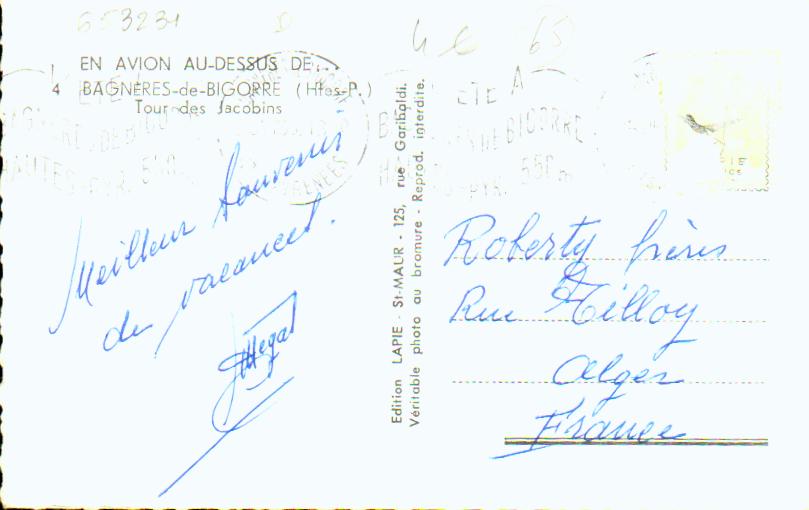 653231
65
EN AVION AU-DESSUS DE...
4 BAGNÈRES-de-BIGORRE (Htes-P.)
Tour des Jacobins
A
BIGORRE
550 m
Meilleur Souvenir
de vacances.
Edition LAPIE - St-MAUR - 125, rue Garibaldi.
Véritable photo au bromure - Reprod. interdite.
Roberty frères
Rue Tilloy
Alger
France